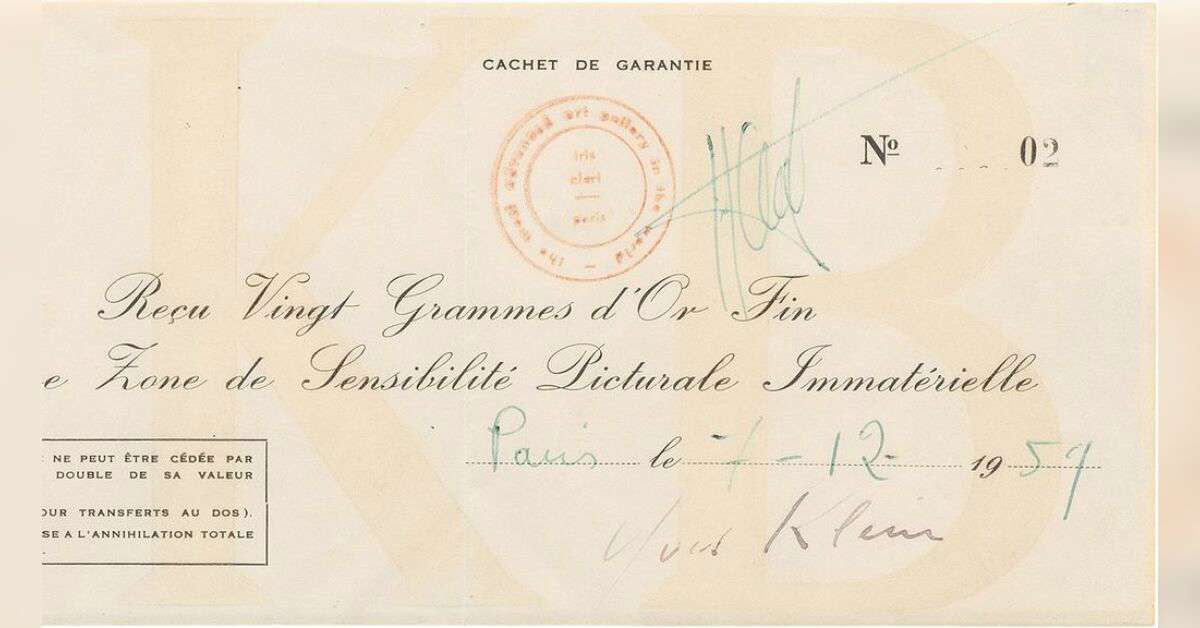 CACHET DE GARANTIE
the most advanced art gallery in the world –
iris
clert
paris
Nº 02
Reçu Vingt Grammes d'Or Fin
e Zone de Sensibilité Picturale Immatérielle
Paris le 7 - 12 - 1959
NE PEUT ÊTRE CÉDÉE PAR
DOUBLE DE SA VALEUR
OUR TRANSFERTS AU DOS).
SE A L'ANNIHILATION TOTALE
Yves Klein
KB